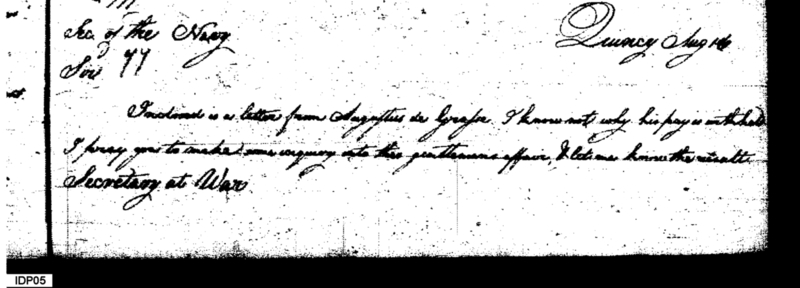 Sec. of the Navy
Quincy Aug 16
Sir 99
Inclosed is a letter from Augustus de Grasse I know not why his pay is withheld
I pray you to make some inquiry into this gentlemans affair, & let me know the result
Secretary at War
IDP05